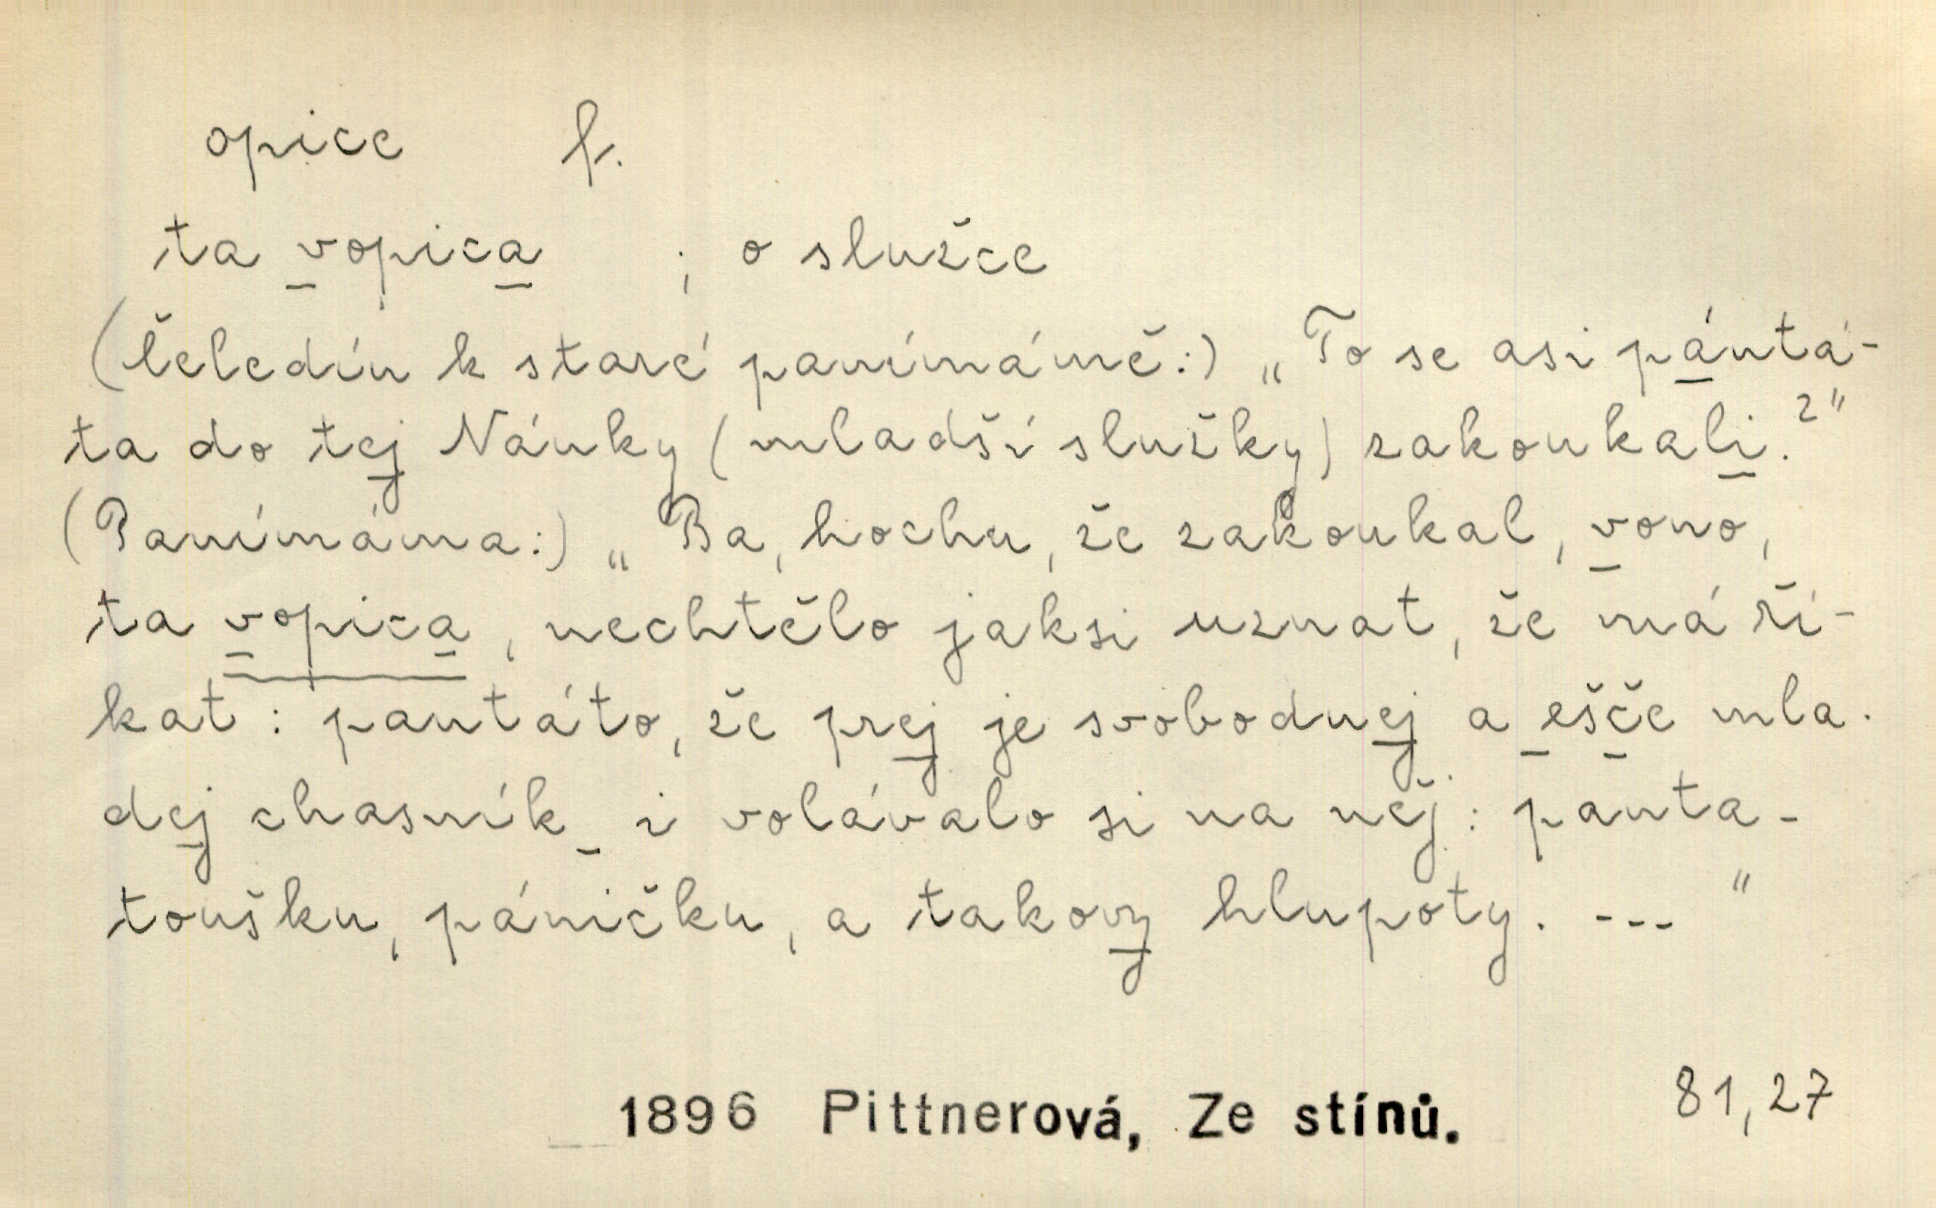 opice f.
ta vopica ; o služce
(Čeledín k staré panímámě:) „To se asi pántá-
ta do tej Nánky (mladší služky) zakoukali.?"
(Panímáma:) „Ba, hochu, že zakoukal, vono,
ta vopica, nechtělo jaksi uznat, že má ří-
kat: pantáto, že prej je svobodnej a ešče mla-
dej chasník i volávalo si na něj: panta-
toušku, páničku, a takovy hlupoty. ---"
1896 Pittnerová, Ze stínů. 81,27